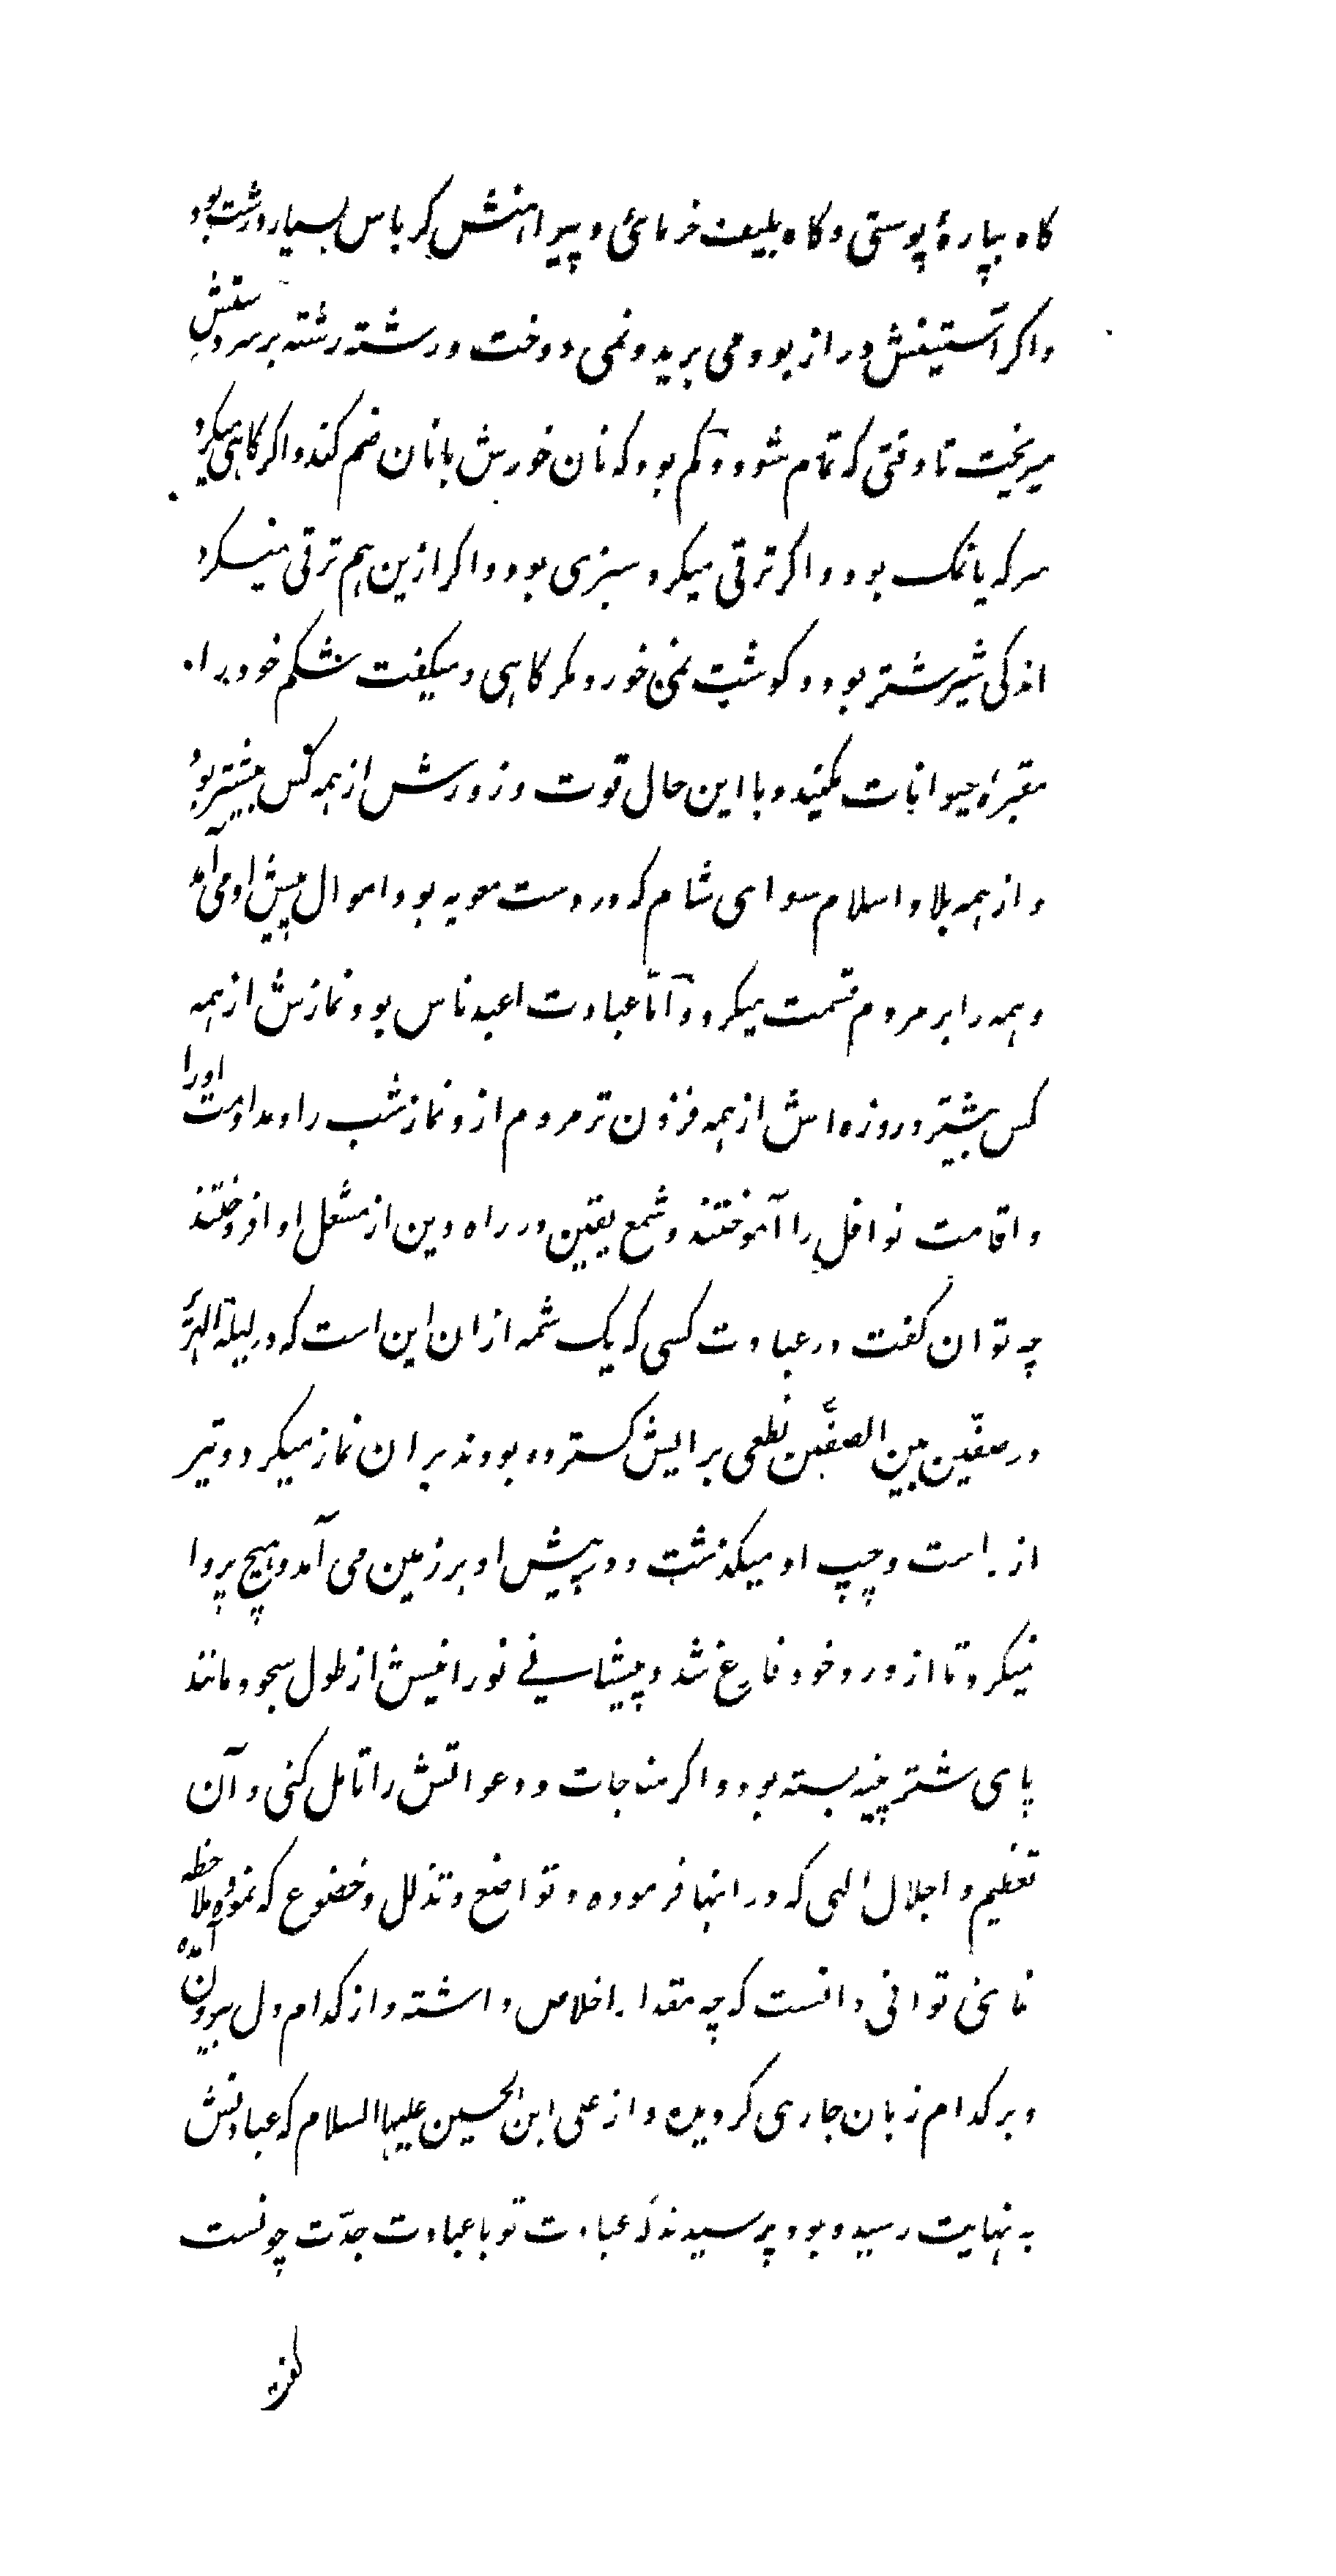 کاه بپارهٔ پوستی و کاه بلیف خرمائی و پیراهنش کرباس بسیار درشت بود
و اکر آستینش دراز بود می برید و نمی دوخت و رشته رشته بر سر دستش
میریخت تا وقتی که تمام شود و کم بود که نان خورش بانان ضم کند و اکر کاهی میکرد
سرکه یا نمک بود و اکر ترقی میکرد سبزی بود و اکر ازین هم ترقی میکرد
اندکی شیر شتر بود و کوشت نمی خورد مکر کاهی و میکفت شکم خود را
مقبرهٔ حیوانات مکنید و با این حال قوت و زورش از همه کس بیشتر بود
و از همه بلاد اسلام سوای شام که در دست معویه بود اموال پیش او می آمد
و همه را بر مردم قسمت میکرد و آما عبادت اعبد ناس بود و نمازش از همه
کس بیشتر و روزه اش از همه فزون تر مردم ازو نماز شب را و مداومت اوراد
و اقامت نوافل را آموختند و شمع یقین در راه دین از مشعل او افروختند
چه توان کفت در عبادت کسی که یک شمه ازان این است که در لیلة الهریر
در صفّین بین الصفّین نطعی برایش کسترده بودند بران نماز میکرد و تیر
از راست و چپ او میکذشت و در پیش او بر زمین می آمد و هیچ پروا
نمیکرد تا از ورد خود فارغ شد و پیشانی نورانیش از طول سجود مانند
پای شتر پینه بسته بود و اکر مناجات و دعواتش را تامل کنی و آن
تعظیم و اجلال الهی که در اینها فرموده و تواضع و تذلل و خضوع که نموده ملاحظه
نمائی توانی دانست که چه مقدار اخلاص داشته و از کدام دل بیرون آمده
و بر کدام زبان جاری کردیده و از علی ابن الحسین علیهما السلام که عبادتش
به نهایت رسیده بود پرسیدند که عبادت تو با عبادت جدّت چونست